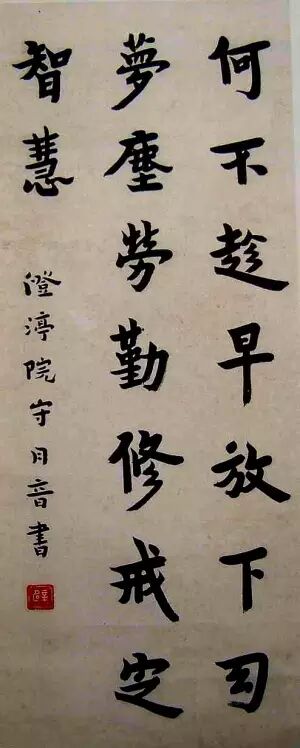 何不趁早放下幻
夢塵勞勤修戒定
智慧
澄渟院守月音書